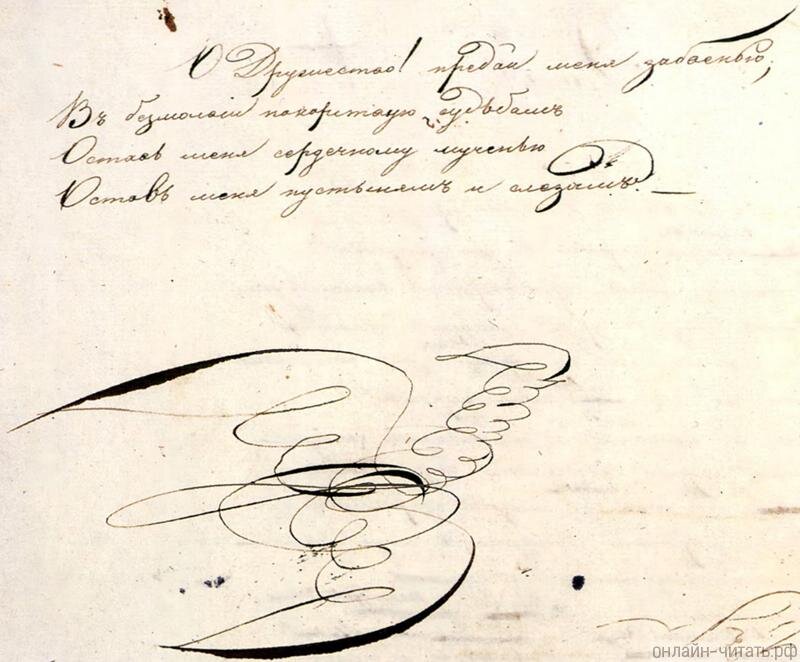 О Дружество! предай меня забвенью;
Въ безмолвіи покорствую судьбамъ
Оставь меня сердечному мученью
Оставь меня пустынямъ и слезамъ. —
онлайн-читать.рф